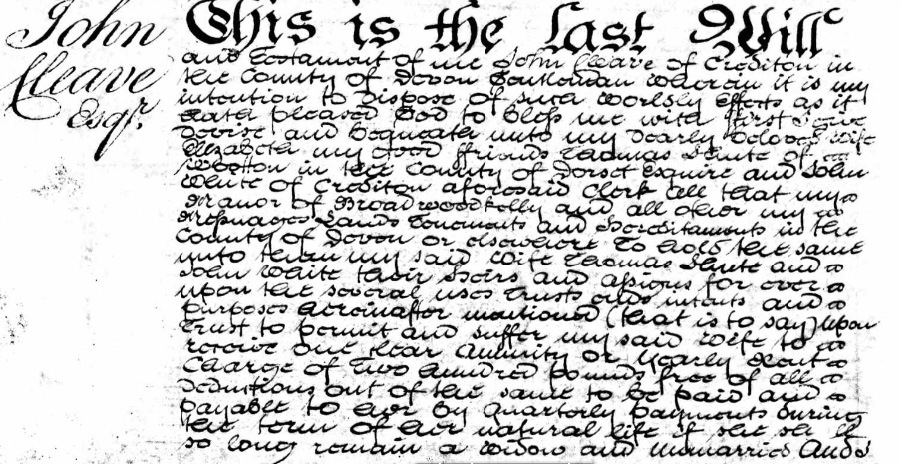 John
Cleave
Esqr.
This is the Last Will
and Testament of me John Cleave of Crediton in
the County of Devon Gentleman wherein it is my
intention to dispose of such worldly effects as it
hath pleased God to bless me with ffirst I give
devise and bequeath unto my dearly beloved wife
Elizabeth my good ffriends Thomas Shute of
Wootton in the County of Dorset Esquire and John
White of Crediton aforesaid Clerk All that my
Manor of Broadwoodkelly and all other my
Messuages Lands Tenements and Hereditaments in the
County of Devon or elsewhere To hold the same
unto them my said wife Thomas Shute and
John White their Heirs and assigns for ever
upon the several uses trusts ends intents and
purposes hereinafter mentioned (that is to say) upon
Trust to permit and suffer my said wife to
receive one clear Annuity or yearly Rent
Charge of Two hundred pounds free of all
deductions out of the same to be paid and
payable to her by quarterly payments during
the term of her natural life if she
so long remain a widow and unmarried And